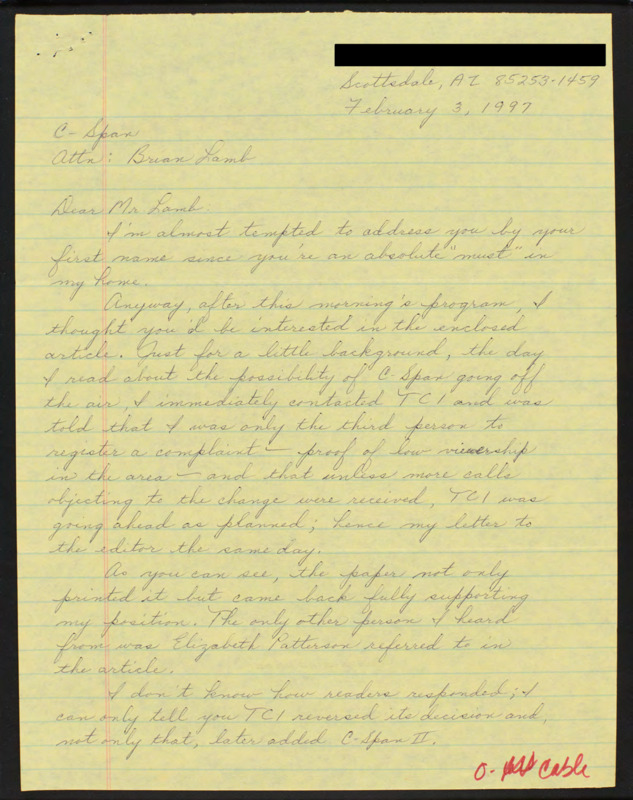 Scottsdale, AZ 85253-1459
February 3, 1997
C-Span
Attn: Brian Lamb
Dear Mr Lamb
I'm almost tempted to address you by your
first name since you're an absolute "must" in
my home.
Anyway, after this morning's program, I
thought you'd be interested in the enclosed
article. Just for a little background, the day
I read about the possibility of C-Span going off
the air, I immediately contacted TCI and was
told that I was only the third person to
register a complaint — proof of low viewership
in the area — and that unless more calls
objecting to the change were received, TCI was
going ahead as planned; hence my letter to
the editor the same day.
As you can see, the paper not only
printed it but came back fully supporting
my position. The only other person I heard
from was Elizabeth Patterson referred to in
the article.
I don't know how readers responded; I
can only tell you TCI reversed its decision and,
not only that, later added C-Span II.
O- Cable